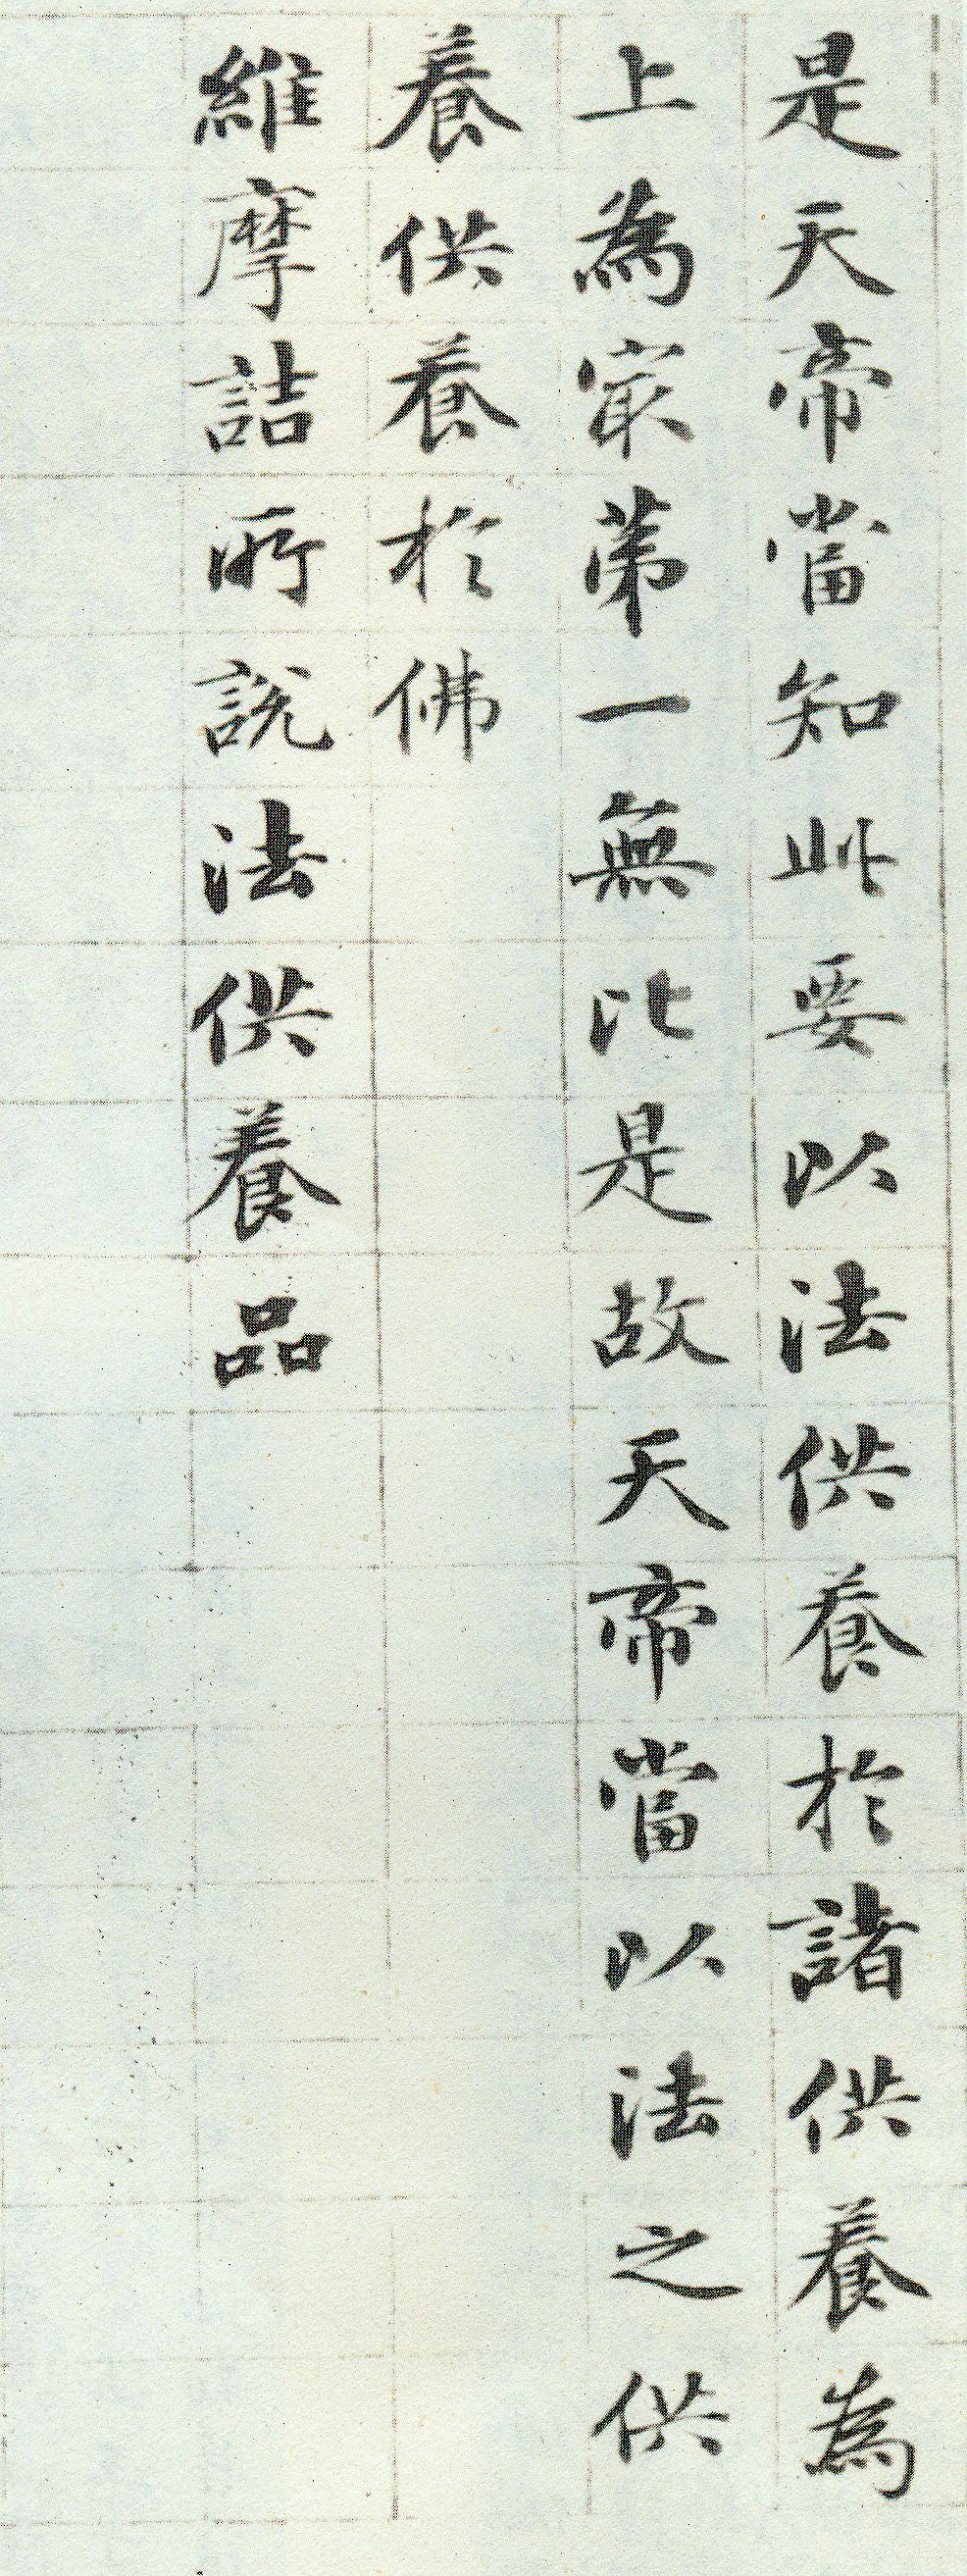 是天帝當知此要以法供養於諸供養為
上為冣苐一無比是故天帝當以法之供
養供養於佛
維摩詰所說法供養品